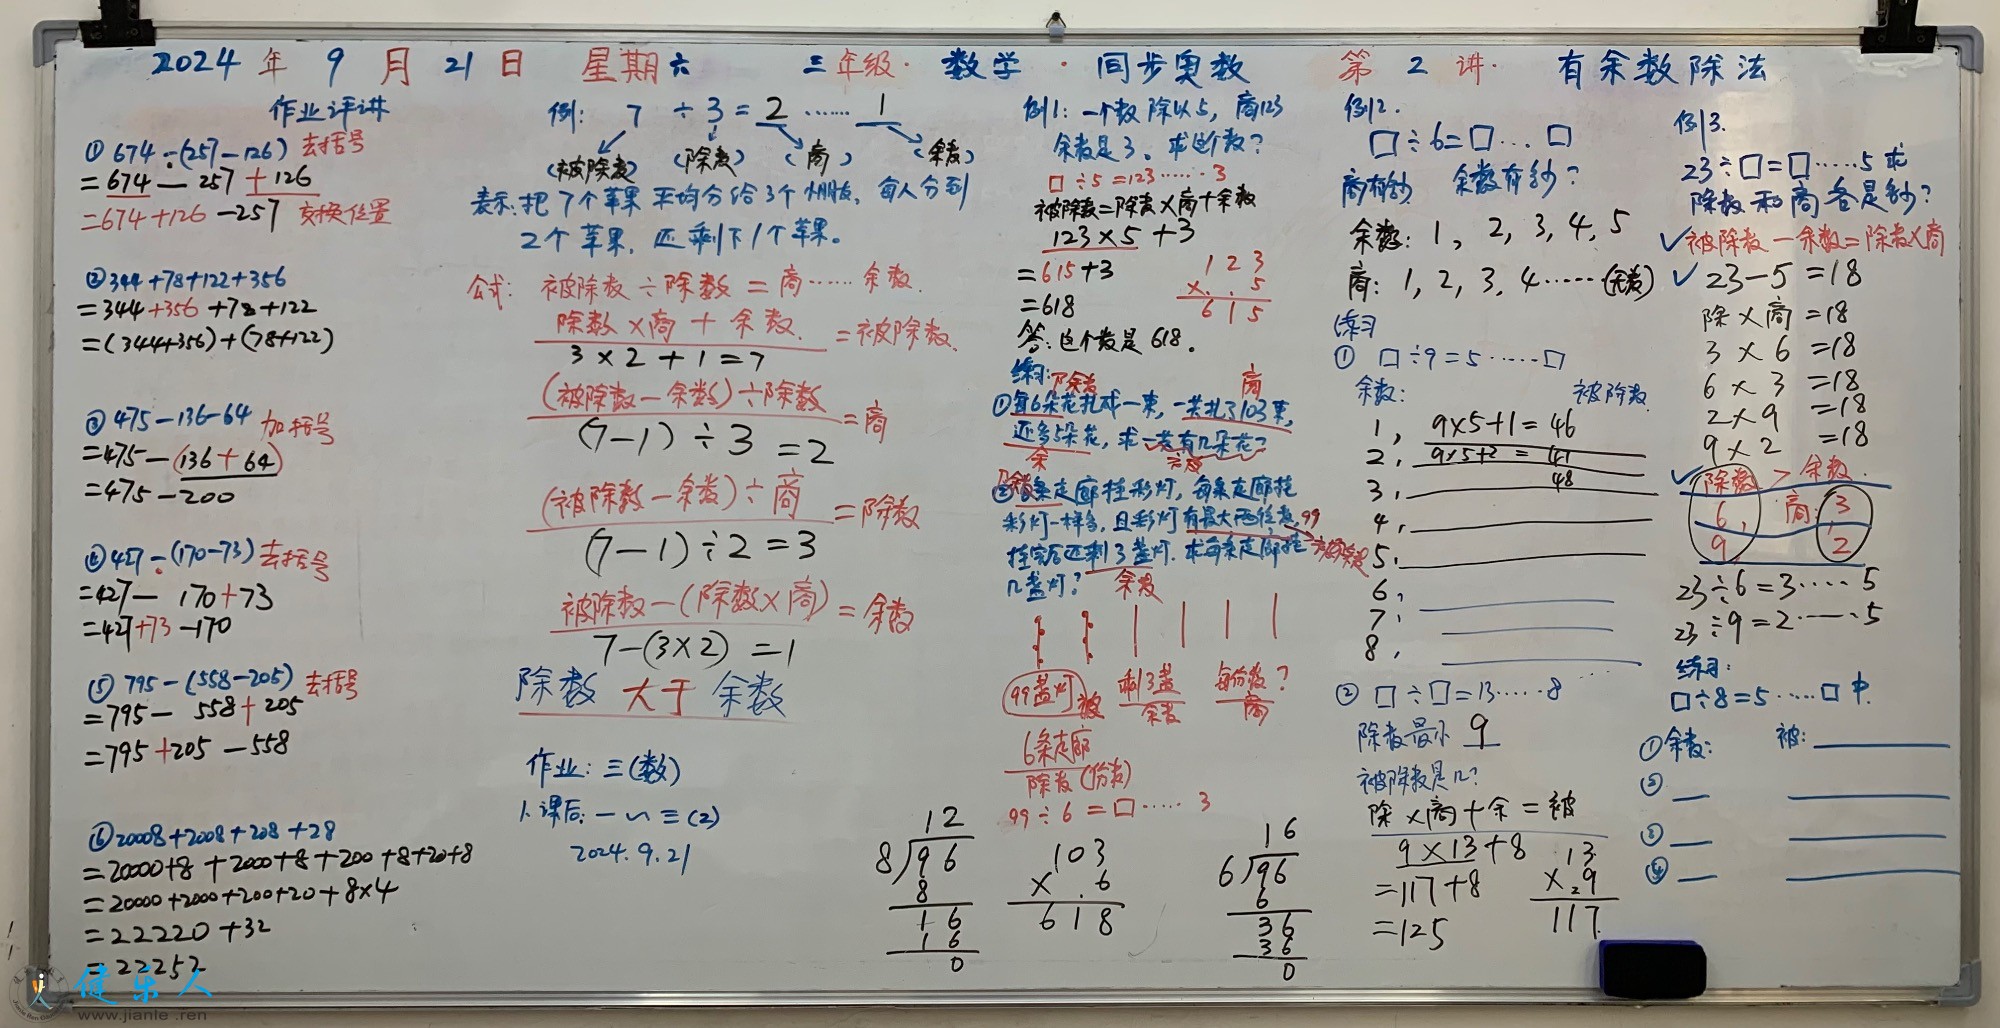 2024年9月21日 星期六 三年级·数学·同步奥数 第2讲· 有余数除法
作业评讲
① 674-(257-126) 去括号
=674-257+126
=674+126-257 交换位置
② 344+78+122+356
=344+356+78+122
=(344+356)+(78+122)
③ 475-136-64 加括号
=475-(136+64)
=475-200
④ 427-(170-73) 去括号
=427-170+73
=427+73-170
⑤ 795-(558-205) 去括号
=795-558+205
=795+205-558
⑥ 20008+2008+208+28
=20000+8+2000+8+200+8+20+8
=20000+2000+200+20+8×4
=22220+32
=22252
例: 7÷3=2……1
(被除数) (除数) (商) (余数)
表示:把7个苹果平均分给3个小朋友,每人分到
2个苹果,还剩下1个苹果。
公式: 被除数÷除数=商……余数.
除数×商+余数=被除数.
3×2+1=7
(被除数-余数)÷除数=商
(7-1)÷3=2
(被除数-余数)÷商=除数
(7-1)÷2=3
被除数-(除数×商)=余数
7-(3×2)=1
除数 大于 余数
作业:三(数)
1.课后:一~三(2)
2024.9.21
12
8)96
8
16
16
0
例1:一个数除以5,商123
余数是3。求这个数?
□÷5=123……3
被除数=除数×商+余数
123×5+3
=615+3
=618
123
×5
615
答:这个数是618。
练习:
除数 商
①每6朵花扎成一束,一共扎了103束,
还多5朵花,求一共有几朵花?
余
除数
②6条走廊挂彩灯,每条走廊挂
彩灯一样多,且彩灯有最大两位数,99
挂完后还剩3盏灯.求每条走廊挂
几盏灯?
余数
99盏灯 被 剩3盏 每份数?
余数 商
6条走廊
除数(份数)
99÷6=□……3
103
×6
618
16
6)96
6
36
36
0
例2.
□÷6=□…□
商有几少 余数有几少?
余数: 1, 2, 3, 4, 5
商: 1, 2, 3, 4……(无数)
练习
① □÷9=5……□
余数: 被除数
1, 9×5+1=46
2, 9×5+2=47
3, 48
4,
5,
6,
7,
8,
② □÷□=13……8
除数最小 9
被除数是几?
除×商+余=被
9×13+8
=117+8
=125
13
×9
117
例3.
23÷□=□……5 求
除数和商各是多少?
✓被除数-余数=除数×商
✓23-5=18
除×商=18
3×6=18
6×3=18
2×9=18
9×2=18
✓除数>余数.
6, 商:3,
9 2
23÷6=3……5
23÷9=2……5
练习:
□÷8=5……□中.
①余数: 被:
②
③
④
健乐人
www.jianle.ren